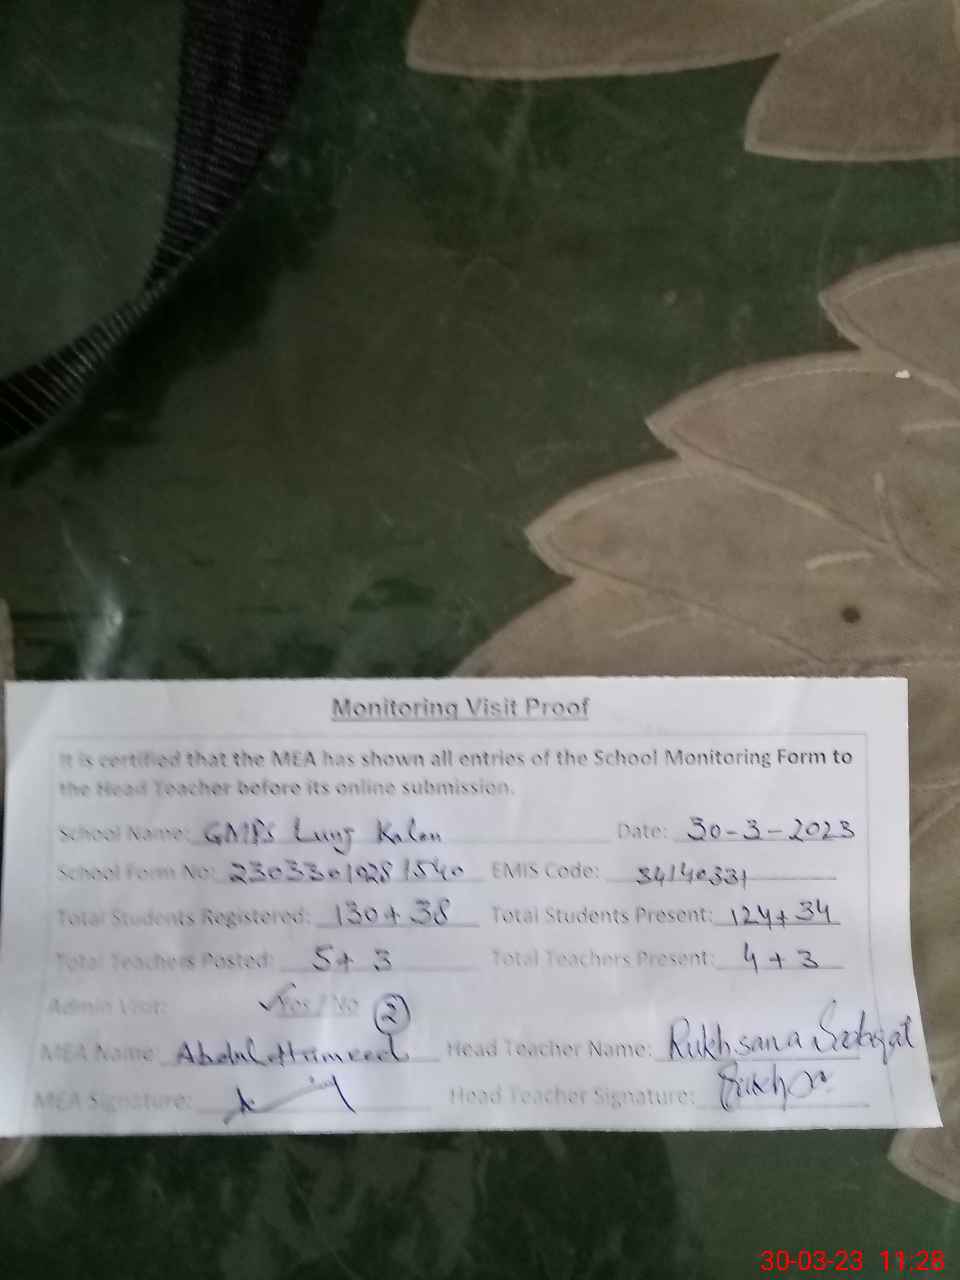 Monitoring Visit Proof
It is certified that the MEA has shown all entries of the School Monitoring Form to
the Head Teacher before its online submission.
School Name: GMPS Lung Kalan Date: 30-3-2023
School Form No: 23033010281540 EMIS Code: 34140331
Total Students Registered: 130+38 Total Students Present: 124+34
Total Teachers Posted: 5+3 Total Teachers Present: 4+3
Admin Visit: Yes / No 2
MEA Name: Abdul Hameed Head Teacher Name: Rukhsana
MEA Signature: Head Teacher Signature:
30-03-23 11:28